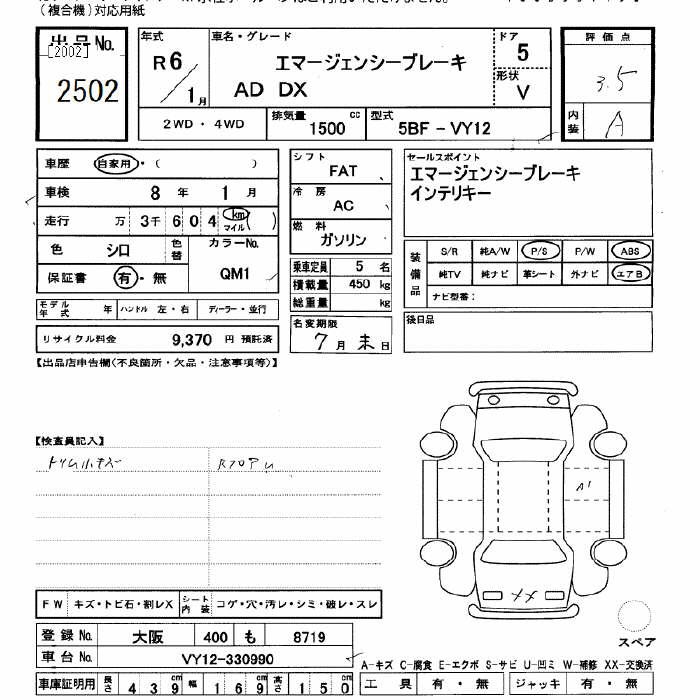 (複合機)対応用紙
出品No.
[2002]
2502
年式
R6/1月
車名・グレード
エマージェンシーブレーキ
AD DX
ドア
5
形状
V
評価点
3.5
内装
A
2WD・4WD
排気量
1500 cc
型式
5BF-VY12
車歴 自家用・( )
車検 8年 1月
走行 万 3千 6 0 4 km マイル ( )
色 シロ 色替
カラーNo.
QM1
保証書 有・無
モデル年式 年 ハンドル 左・右 ディーラー・並行
リサイクル料金 9,370 円 預託済
シフト
FAT
冷房
AC
燃料
ガソリン
乗車定員 5 名
積載量 450 kg
総重量 kg
名変期限
7月末日
セールスポイント
エマージェンシーブレーキ
インテリキー
装備品
S/R 純A/W P/S P/W ABS
純TV 純ナビ 革シート 外ナビ エアB
ナビ型番:
後日品
【出品店申告欄(不良箇所・欠品・注意事項等)】
【検査員記入】
トリム小キズ
A1
XX
FW キズ・トビ石・割レX シート内装 コゲ・穴・汚レ・シミ・破レ・スレ
スペア
登録No. 大阪 400 も 8719
車台No. VY12-330990
A-キズ C-腐食 E-エクボ S-サビ U-凹ミ W-補修 XX-交換済
車庫証明用 長さ 4 3 9 cm 幅 1 6 9 cm 高さ 1 5 0 cm
工具 有・無 ジャッキ 有・無